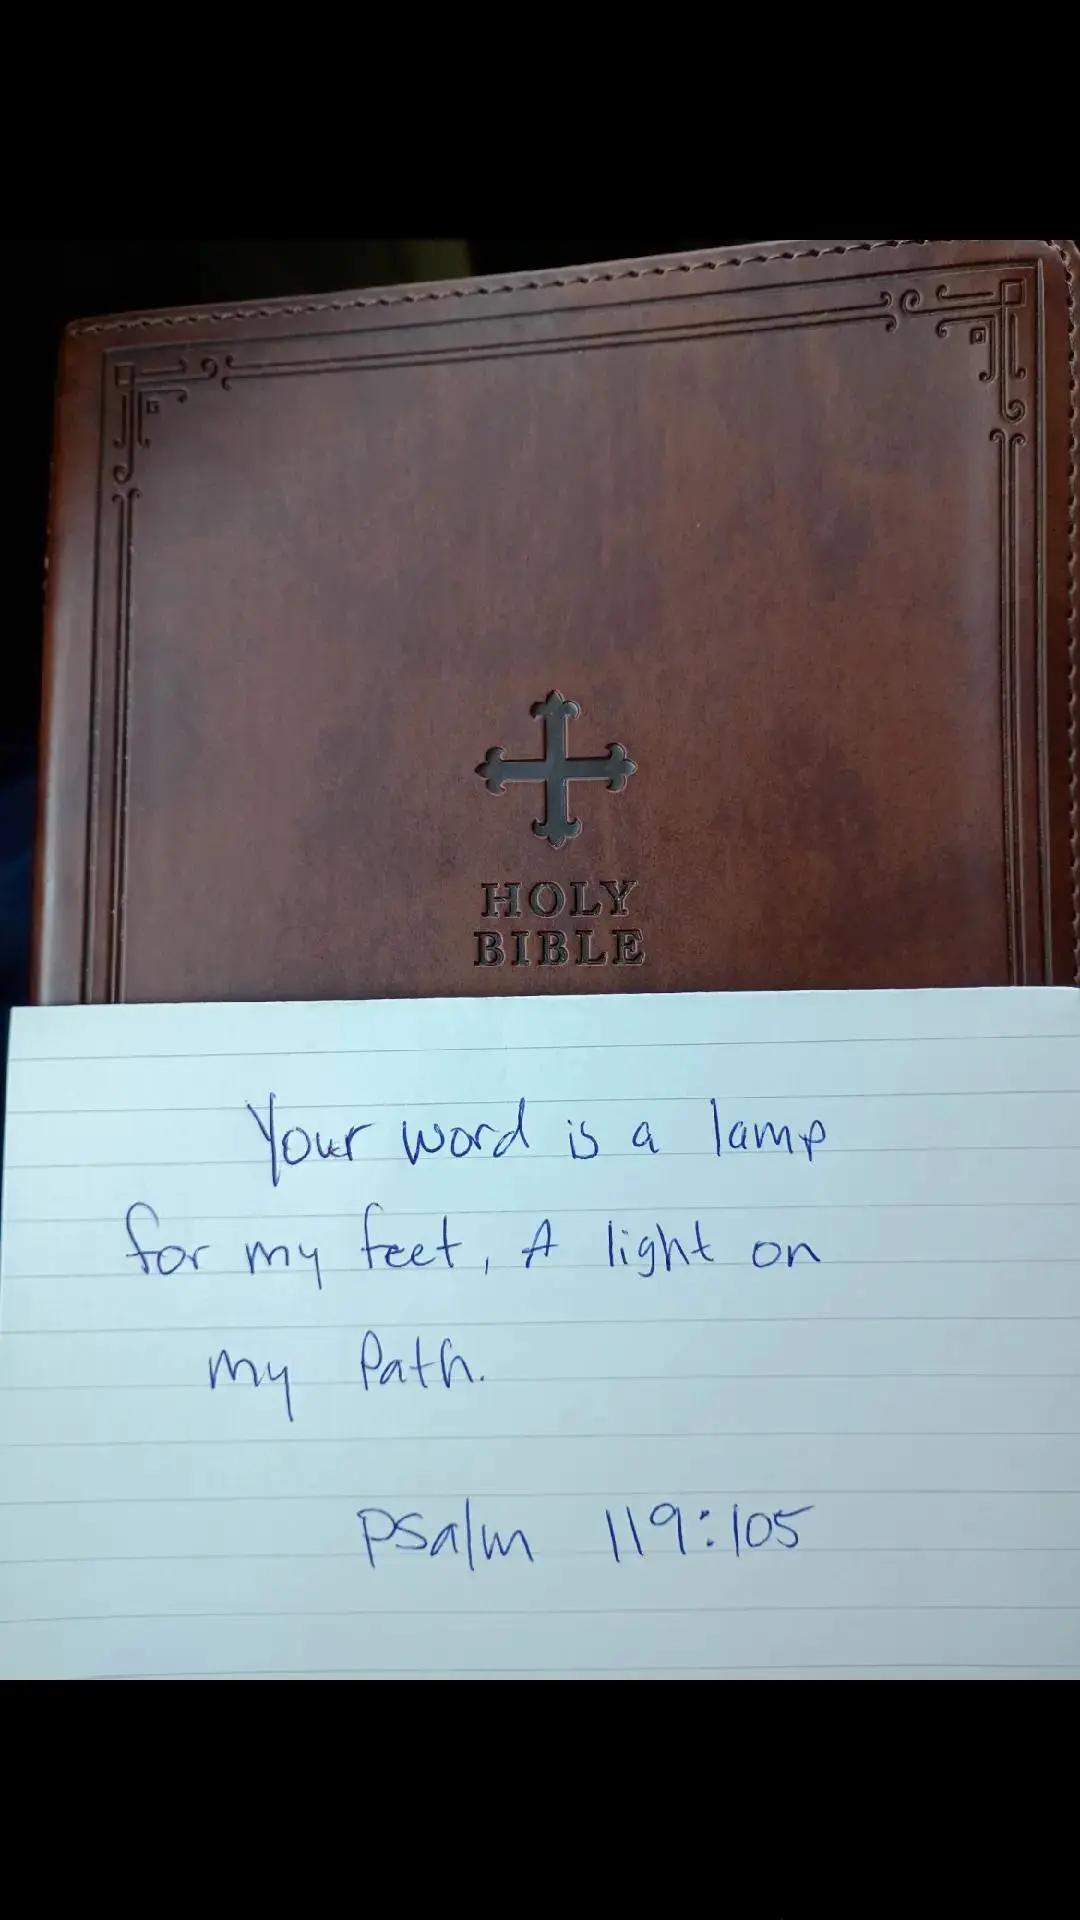 HOLY
BIBLE
Your word is a lamp
for my feet, A light on
my Path.
Psalm 119:105